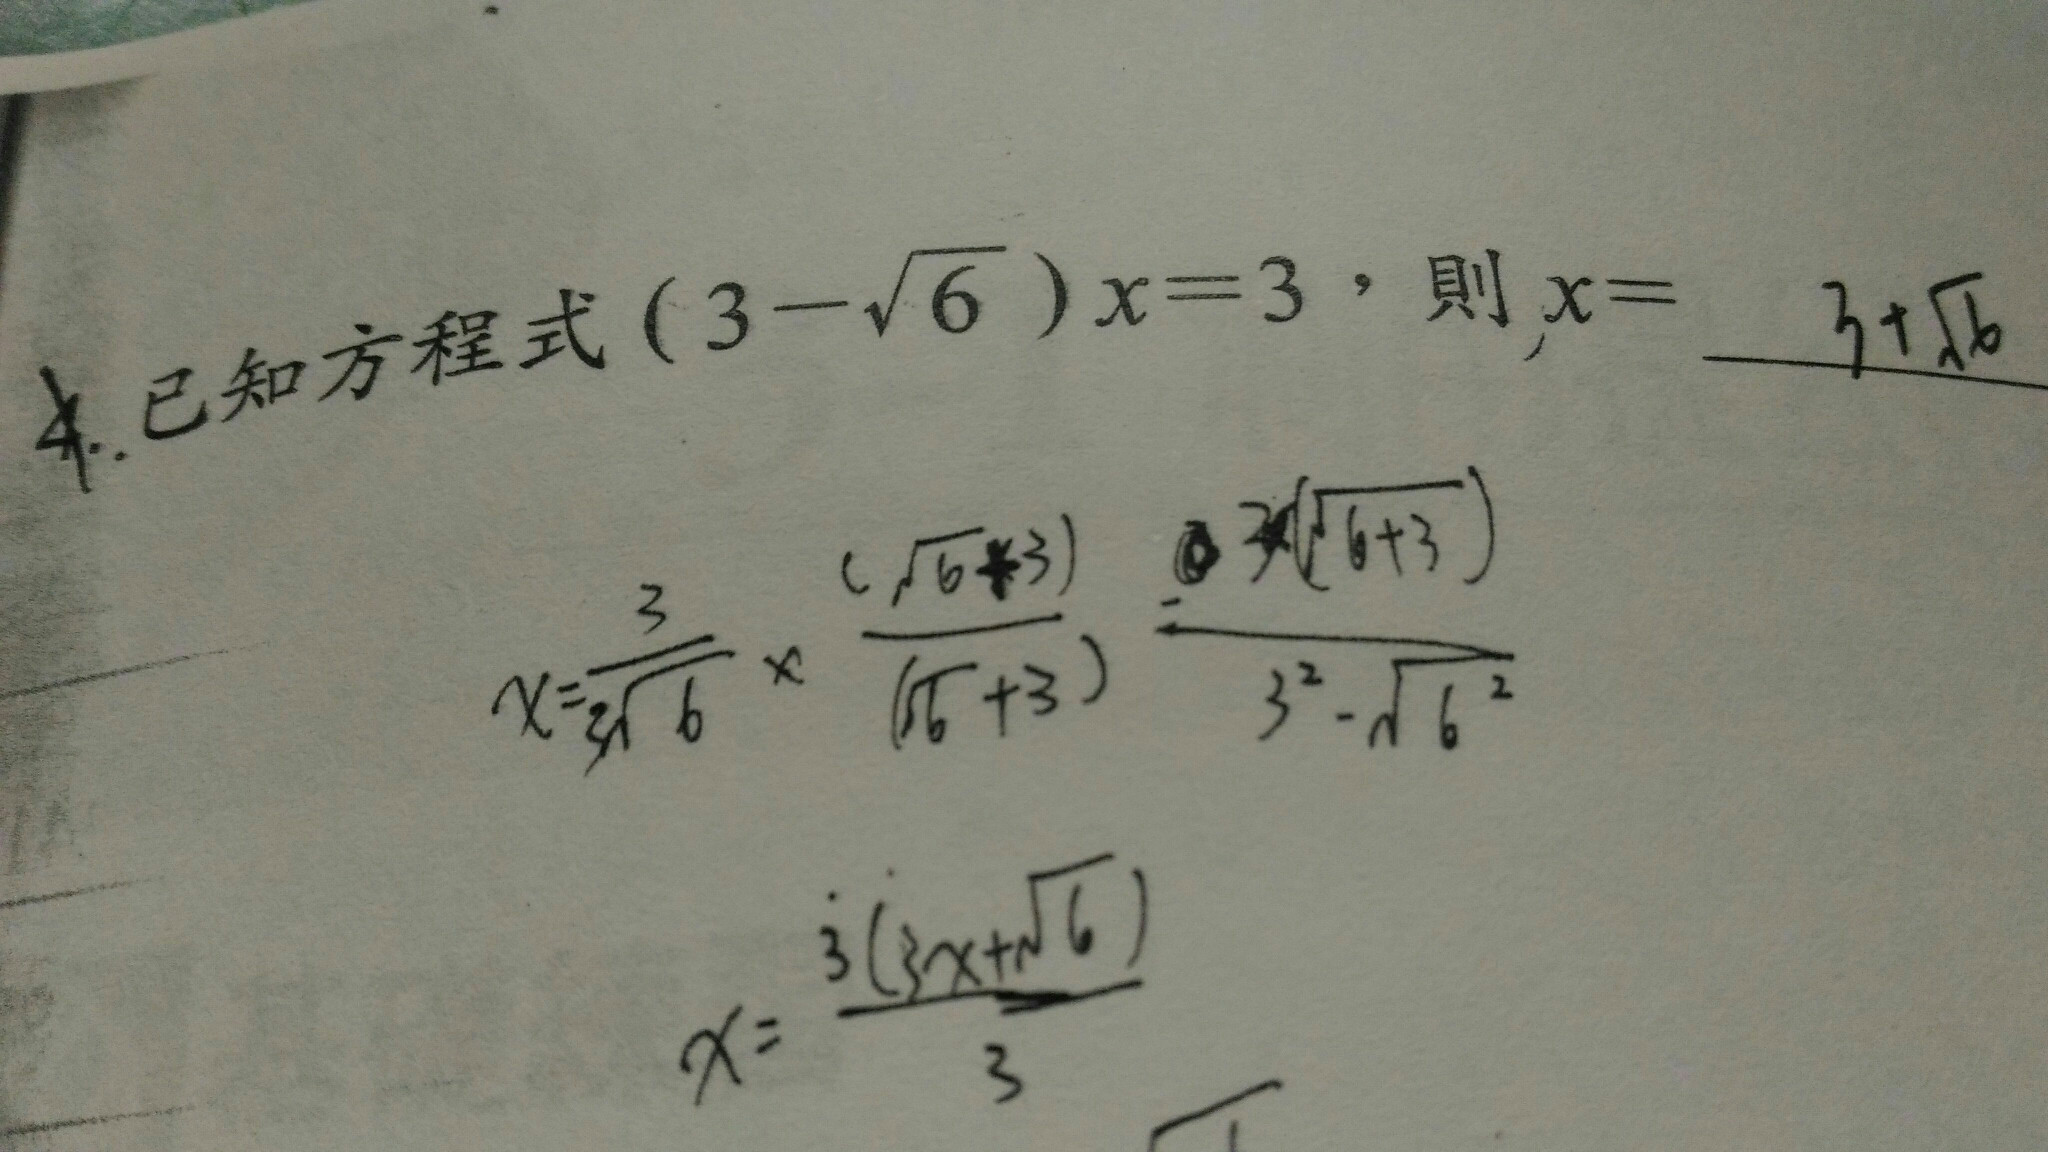 4. 已知方程式(3-√6)x=3，則x= 3+√6
x=3/3√6 × (√6+3)/(√6+3) = 3(√6+3)/3²-√6²
x= 3(3x+√6)/3